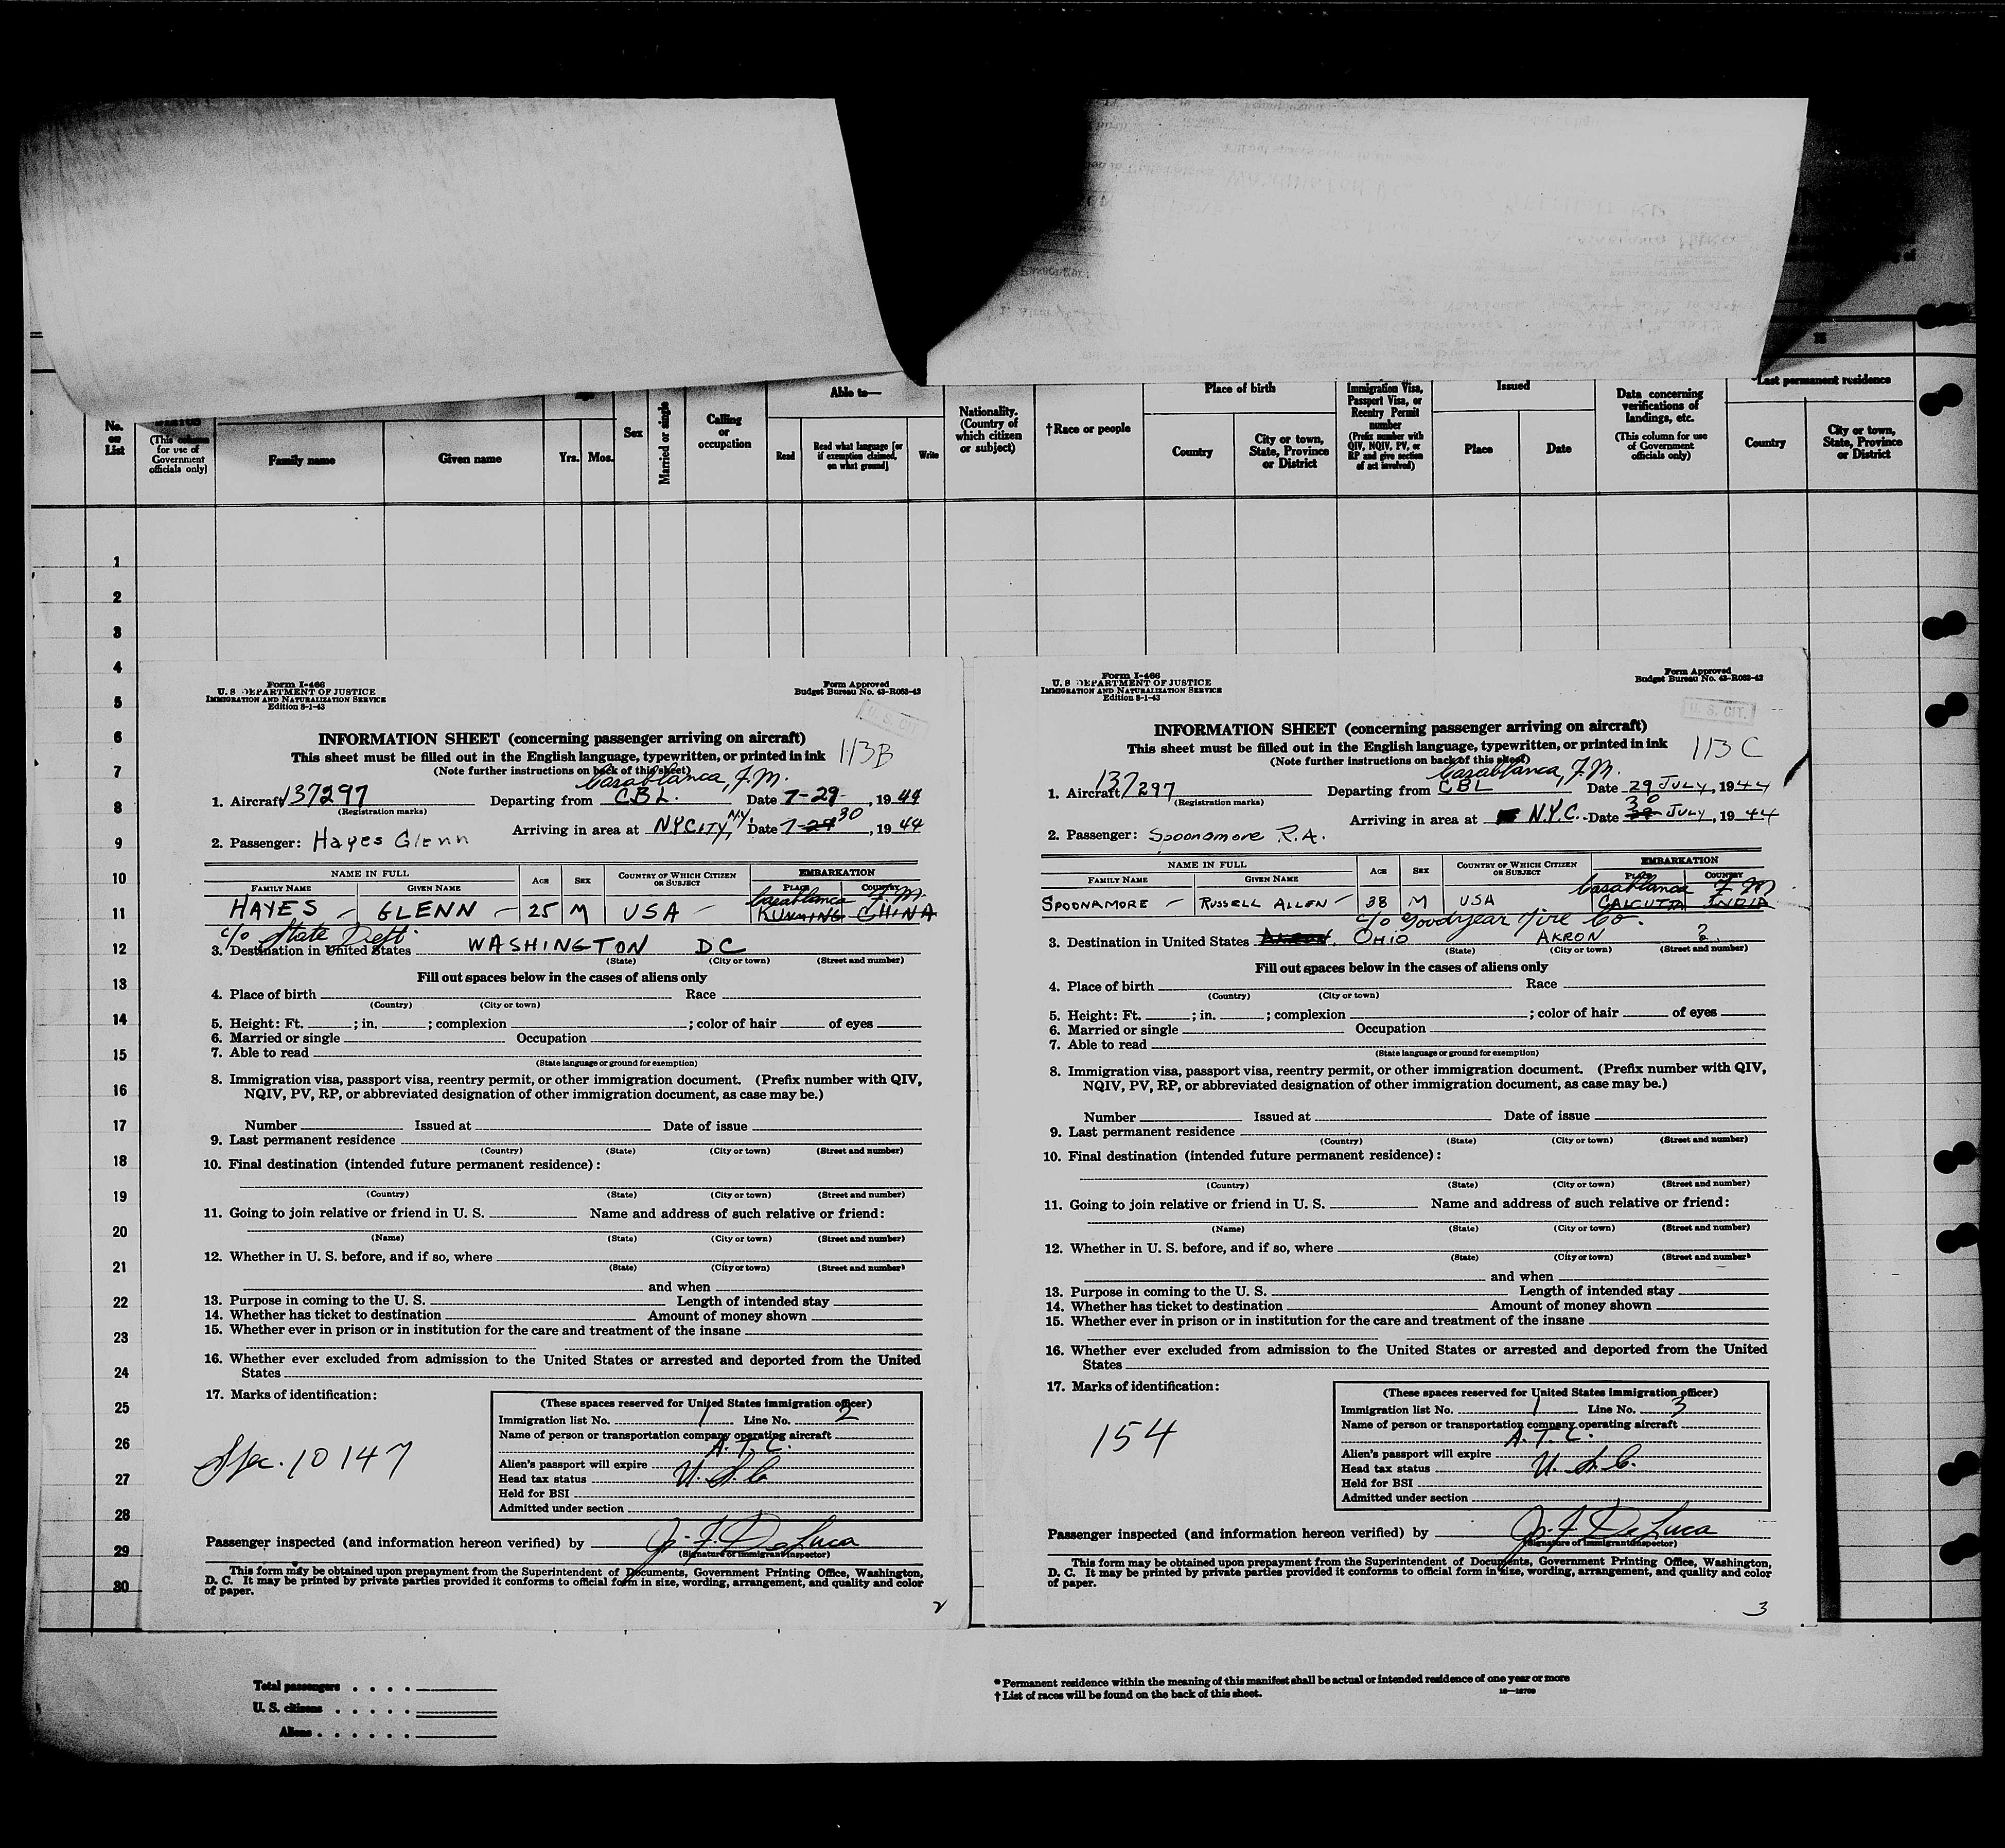 No. on List
(This column for use of Government officials only)
Family name
Given name
Yrs.
Mos.
Sex
Married or single
Calling or occupation
Able to—
Read
Read what language [or if exemption claimed, on what ground]
Write
Nationality. (Country of which citizen or subject)
†Race or people
Place of birth
Country
City or town, State, Province or District
Immigration Visa, Passport Visa, or Reentry Permit number
(Prefix number with QIV, NQIV, PV, or RP and give section of act involved)
Issued
Place
Date
Data concerning verifications of landings, etc.
(This column for use of Government officials only)
*Last permanent residence
Country
City or town, State, Province or District
1
2
3
4
5
6
7
8
9
10
11
12
13
14
15
16
17
18
19
20
21
22
23
24
25
26
27
28
29
30
Form I-466
U. S. DEPARTMENT OF JUSTICE
IMMIGRATION AND NATURALIZATION SERVICE
Edition 8-1-43
Form Approved
Budget Bureau No. 43-R063-42
U. S. CIT.
INFORMATION SHEET (concerning passenger arriving on aircraft)
113B
This sheet must be filled out in the English language, typewritten, or printed in ink
(Note further instructions on back of this sheet)
Casablanca, F.M.
1. Aircraft 137297 Departing from CBL. Date 7-29-, 1944
(Registration marks)
Arriving in area at N.Y.CITY, N.Y. Date 7-29 30, 1944
2. Passenger: Hayes Glenn
NAME IN FULL
FAMILY NAME
GIVEN NAME
AGE
SEX
COUNTRY OF WHICH CITIZEN OR SUBJECT
EMBARKATION
PLACE
COUNTRY
Casablanca F.M.
HAYES – GLENN – 25 M USA – KUNMING CHINA
c/o State Dept
3. Destination in United States WASHINGTON DC
(State) (City or town) (Street and number)
Fill out spaces below in the cases of aliens only
4. Place of birth Race
(Country) (City or town)
5. Height: Ft. ; in. ; complexion ; color of hair of eyes
6. Married or single Occupation
7. Able to read
(State language or ground for exemption)
8. Immigration visa, passport visa, reentry permit, or other immigration document. (Prefix number with QIV,
NQIV, PV, RP, or abbreviated designation of other immigration document, as case may be.)
Number Issued at Date of issue
9. Last permanent residence
(Country) (State) (City or town) (Street and number)
10. Final destination (intended future permanent residence):
(Country) (State) (City or town) (Street and number)
11. Going to join relative or friend in U. S. Name and address of such relative or friend:
(Name) (State) (City or town) (Street and number)
12. Whether in U. S. before, and if so, where
(State) (City or town) (Street and number)
and when
13. Purpose in coming to the U. S. Length of intended stay
14. Whether has ticket to destination Amount of money shown
15. Whether ever in prison or in institution for the care and treatment of the insane
16. Whether ever excluded from admission to the United States or arrested and deported from the United
States
17. Marks of identification:
(These spaces reserved for United States immigration officer)
Immigration list No. 1 Line No. 2
Name of person or transportation company operating aircraft
A. T. C.
Alien's passport will expire
Head tax status U. S. C.
Held for BSI
Admitted under section
Spec. 10147
Passenger inspected (and information hereon verified) by Jos. F. DeLuca
(Signature of immigrant inspector)
This form may be obtained upon prepayment from the Superintendent of Documents, Government Printing Office, Washington,
D. C. It may be printed by private parties provided it conforms to official form in size, wording, arrangement, and quality and color
of paper.
2
Form I-466
U. S. DEPARTMENT OF JUSTICE
IMMIGRATION AND NATURALIZATION SERVICE
Edition 8-1-43
Form Approved
Budget Bureau No. 43-R063-42
U. S. CIT.
INFORMATION SHEET (concerning passenger arriving on aircraft)
113C
This sheet must be filled out in the English language, typewritten, or printed in ink
(Note further instructions on back of this sheet)
Casablanca, F.M.
1. Aircraft 137297 Departing from CBL Date 29 JULY, 1944
(Registration marks)
Arriving in area at N.Y.C. Date 30 JULY, 1944
2. Passenger: Spoonamore R.A.
NAME IN FULL
FAMILY NAME
GIVEN NAME
AGE
SEX
COUNTRY OF WHICH CITIZEN OR SUBJECT
EMBARKATION
PLACE
COUNTRY
Casablanca F.M.
SPOONAMORE – RUSSELL ALLEN – 38 M USA CALCUTTA INDIA
c/o Goodyear Tire Co.
3. Destination in United States Akron, OHIO AKRON ?
(State) (City or town) (Street and number)
Fill out spaces below in the cases of aliens only
4. Place of birth Race
(Country) (City or town)
5. Height: Ft. ; in. ; complexion ; color of hair of eyes
6. Married or single Occupation
7. Able to read
(State language or ground for exemption)
8. Immigration visa, passport visa, reentry permit, or other immigration document. (Prefix number with QIV,
NQIV, PV, RP, or abbreviated designation of other immigration document, as case may be.)
Number Issued at Date of issue
9. Last permanent residence
(Country) (State) (City or town) (Street and number)
10. Final destination (intended future permanent residence):
(Country) (State) (City or town) (Street and number)
11. Going to join relative or friend in U. S. Name and address of such relative or friend:
(Name) (State) (City or town) (Street and number)
12. Whether in U. S. before, and if so, where
(State) (City or town) (Street and number)
and when
13. Purpose in coming to the U. S. Length of intended stay
14. Whether has ticket to destination Amount of money shown
15. Whether ever in prison or in institution for the care and treatment of the insane
16. Whether ever excluded from admission to the United States or arrested and deported from the United
States
17. Marks of identification:
(These spaces reserved for United States immigration officer)
Immigration list No. 1 Line No. 3
Name of person or transportation company operating aircraft
A. T. C.
Alien's passport will expire
Head tax status U. S. C.
Held for BSI
Admitted under section
154
Passenger inspected (and information hereon verified) by Jos. F. DeLuca
(Signature of immigrant inspector)
This form may be obtained upon prepayment from the Superintendent of Documents, Government Printing Office, Washington,
D. C. It may be printed by private parties provided it conforms to official form in size, wording, arrangement, and quality and color
of paper.
3
Total passengers . . . .
U. S. citizens . . . . .
Aliens . . . . . .
* Permanent residence within the meaning of this manifest shall be actual or intended residence of one year or more
† List of races will be found on the back of this sheet.